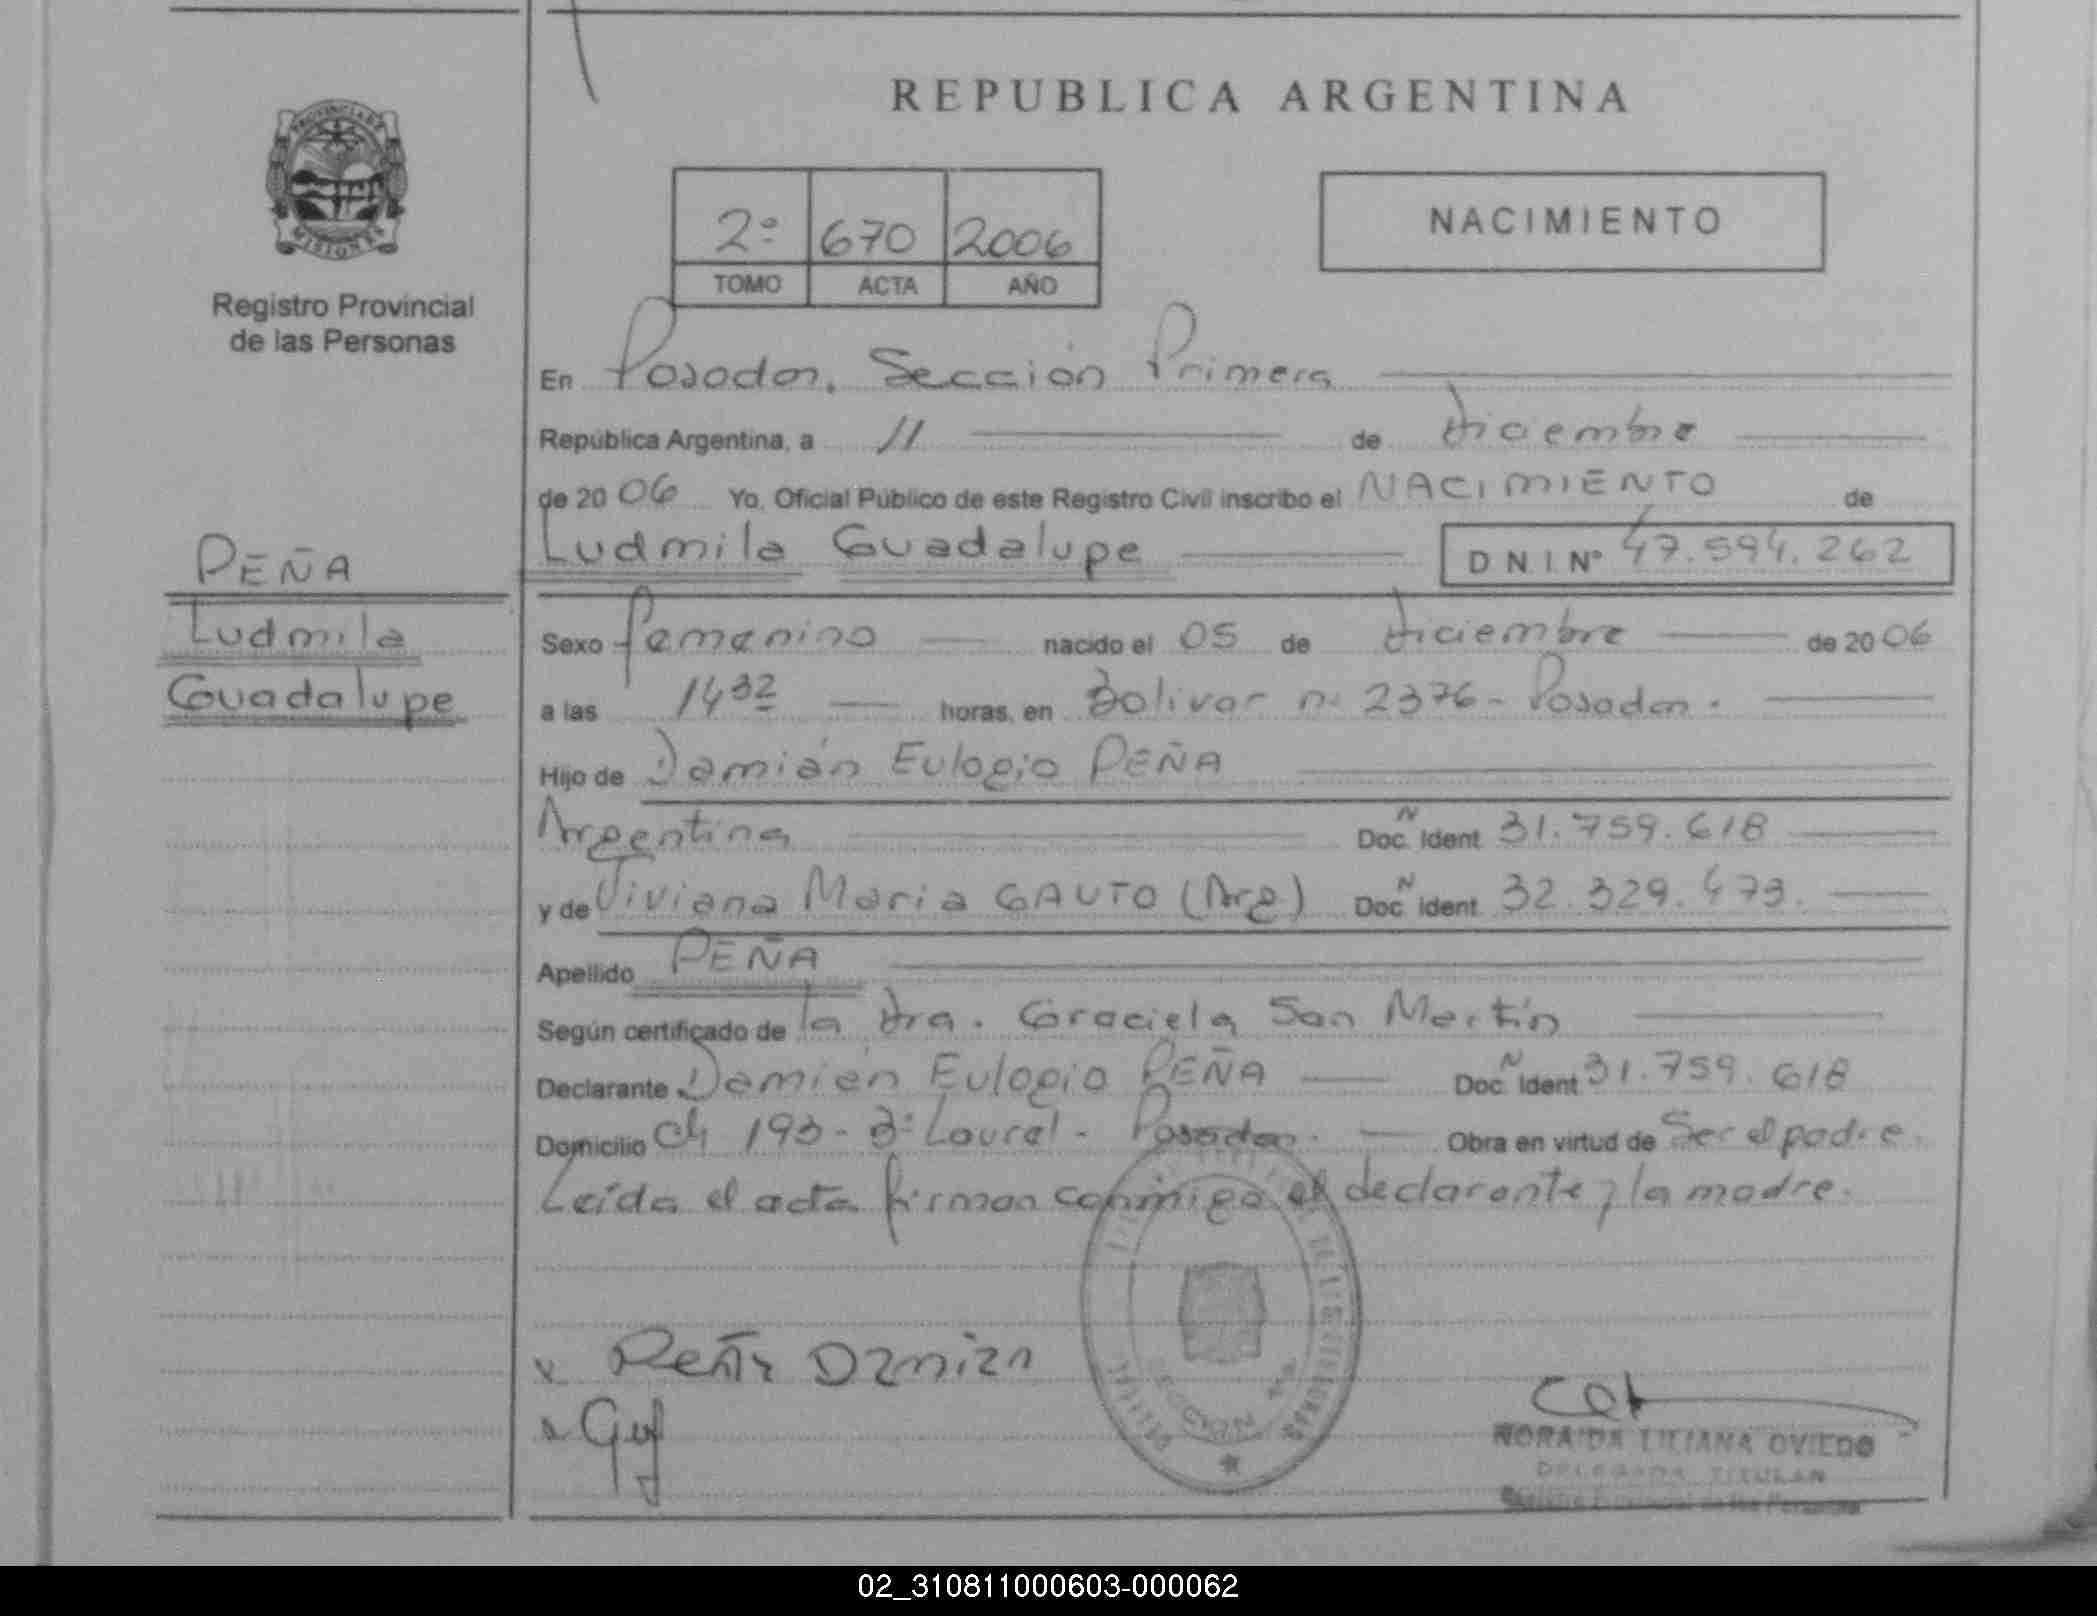 REPUBLICA ARGENTINA
PROVINCIA DE
MISIONES
Registro Provincial
de las Personas
2º 670 2006
TOMO ACTA AÑO
NACIMIENTO
En Posadas, Sección Primera
República Argentina, a 11 de diciembre
de 20 06 Yo, Oficial Público de este Registro Civil inscribo el NACIMIENTO de
Ludmila Guadalupe D N I Nº 47.594.262
PEÑA
Ludmila
Guadalupe
Sexo femenino nacido el 05 de diciembre de 20 06
a las 14 32 horas, en Bolivar nº 2376 - Posadas.
Hijo de Damián Eulogio PEÑA
Argentina Doc. N Ident 31.759.618
y de Viviana Maria GAUTO (Arg) Doc. N Ident 32.329.473.
Apellido PEÑA
Según certificado de la dra. Graciela San Martín
Declarante Damián Eulogio PEÑA Doc. N Ident 31.759.618
Domicilio Ch 193 - Bº Laurel - Posadas. Obra en virtud de Ser el padre.
Leída el acta firman conmigo el declarante y la madre.
x Peña Damian
NORAIDA LILIANA OVIEDO
DELEGADA TITULAR
Registro Provincial de las Personas
02_310811000603-000062